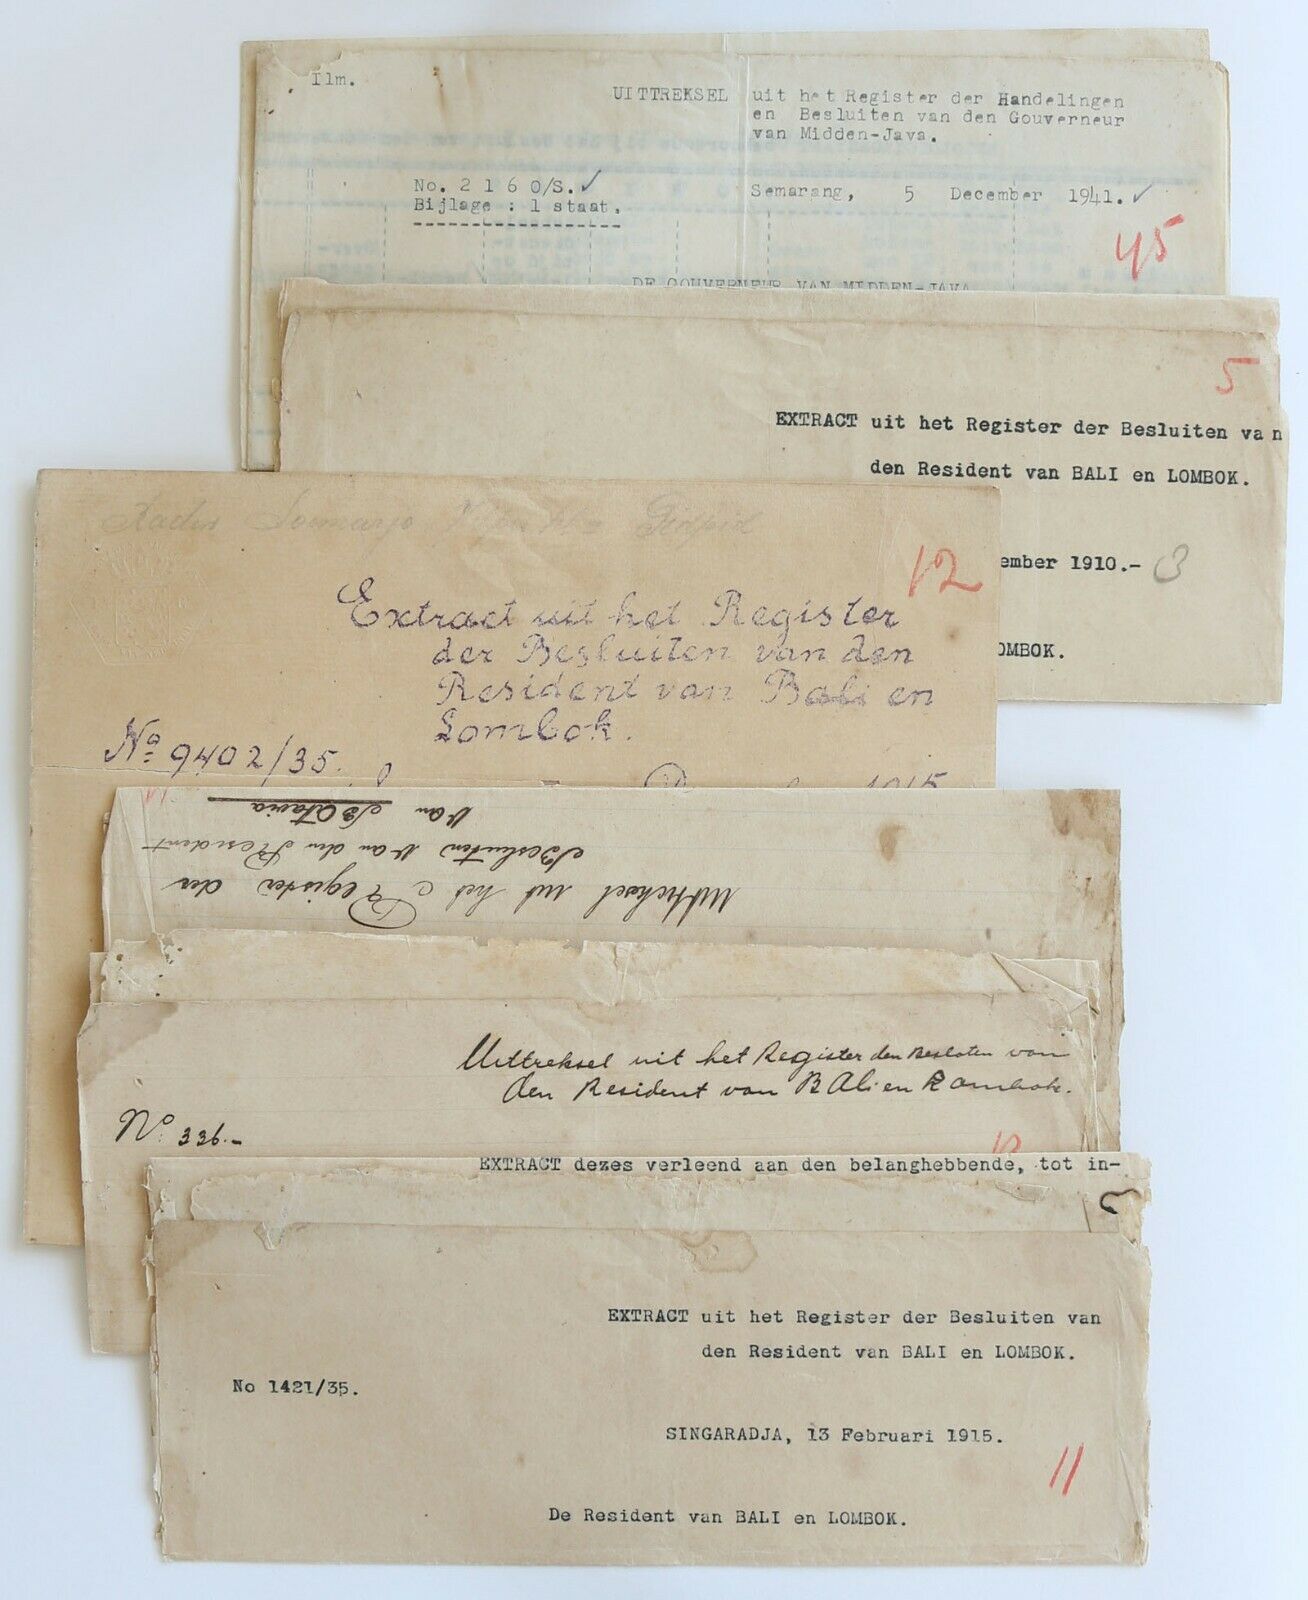 Ilm.
UITTREKSEL uit het Register der Handelingen
en Besluiten van den Gouverneur
van Midden-Java.
No. 2 1 6 0/S. ✓
Bijlage : 1 staat.
Semarang, 5 December 1941. ✓
45
DE GOUVERNEUR VAN MIDDEN-JAVA
5
EXTRACT uit het Register der Besluiten van
den Resident van BALI en LOMBOK.
ember 1910.- 3
OMBOK.
12
Extract uit het Register
der Besluiten van den
Resident van Bali en
Lombok.
No 9402/35.
1915
Uittreksel uit het Register der
Besluiten van den Resident
van Batavia
Uittreksel uit het Register den Besloten van
den Resident van BAli en Lombok.
No. 336.-
EXTRACT dezes verleend aan den belanghebbende, tot in-
EXTRACT uit het Register der Besluiten van
den Resident van BALI en LOMBOK.
No 1421/35.
SINGARADJA, 13 Februari 1915.
11
De Resident van BALI en LOMBOK.